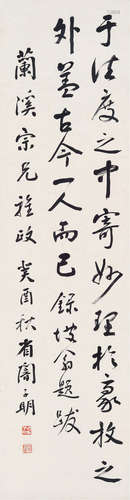 于法度之中寄妙理於豪放之
外蓋古今一人而已錄坡翁題跋
蘭溪宗兄雅政癸酉秋省閻子明